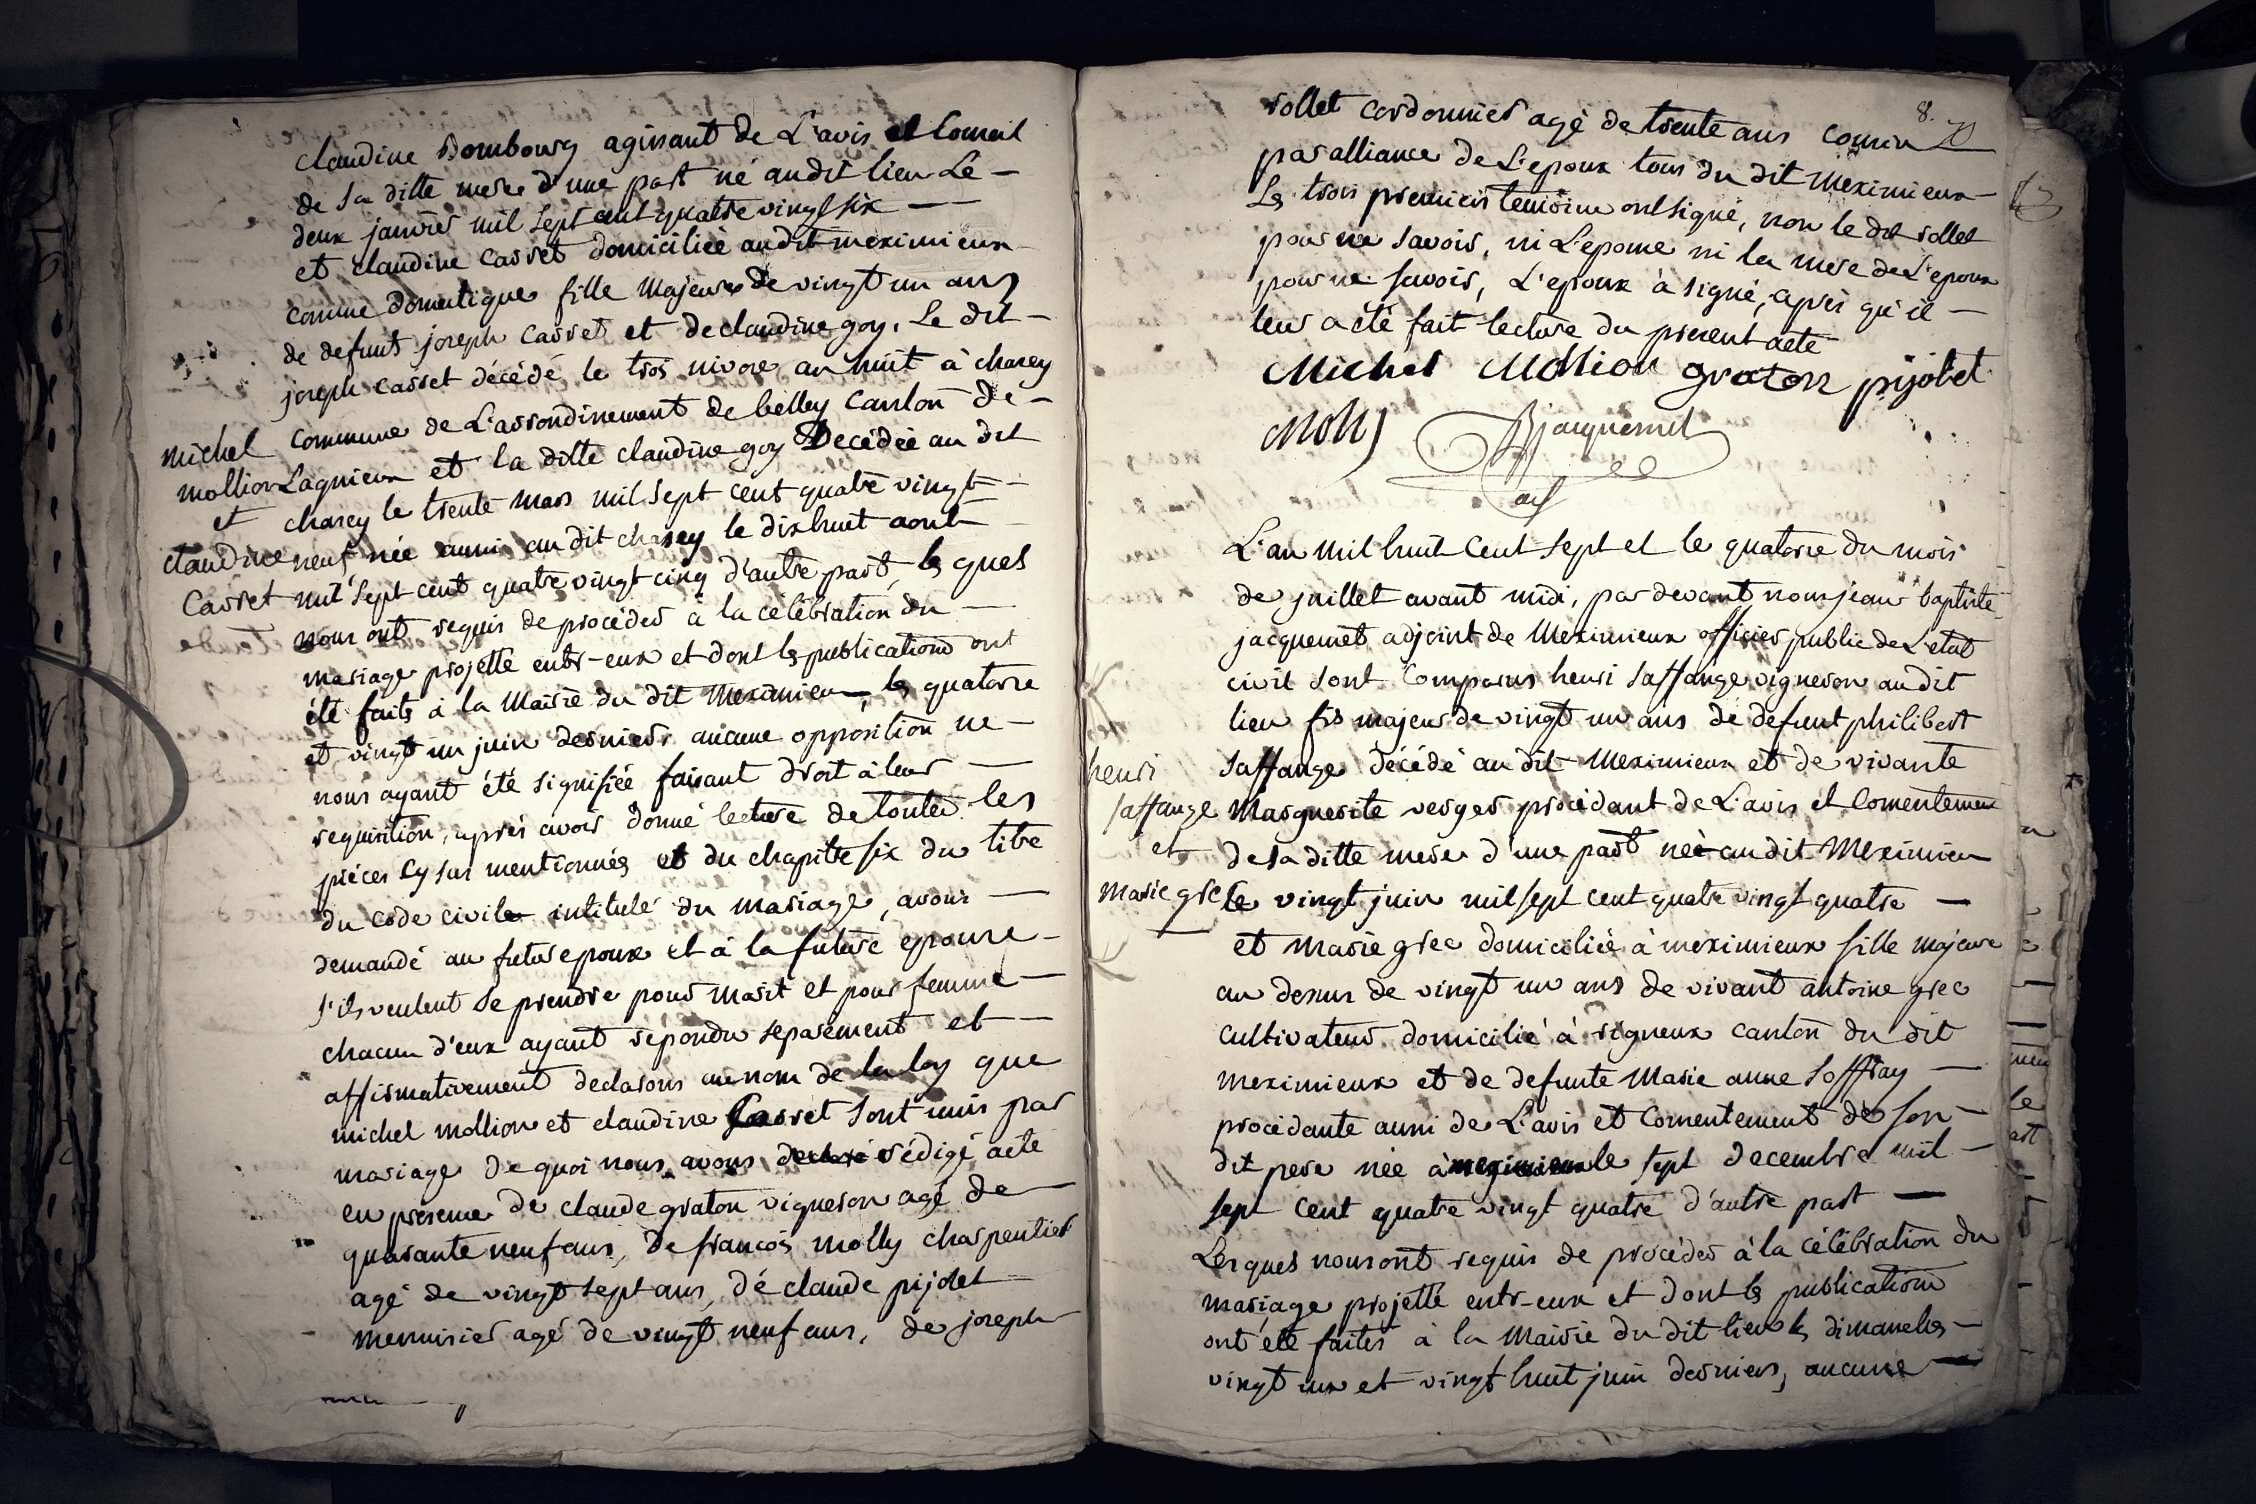 claudine Bombourg agissant de L'avis et Conseil
de sa ditte mere d'une part né audit lieu Le
deux janvier mil sept cent quatre vingt six
et claudine carret domiciliée audit meximieux
comme domestique fille majeure de vingt un ans
de defunts joseph carret et de claudine goy. Le dit
joseph carret décédé le trois nivose an huit à charey
commune de L'arrondinement de belley canton de
Lagnieux et la ditte claudine goy Decédée au dit
charey le trente mars mil sept cent quatre vingt
neuf née aussi au dit charey le dix huit aout
mil sept cent quatre vingt cinq d'autre part, les ques
nous ont requis de procéder à la célébration du
mariage projetté entr-eux et dont les publications ont
été faits à la Mairie du dit Meximieux, les quatorze
et vingt un juin derniers aucune opposition ne
nous ayant été signifiée faisant droit à leur
requisition, après avoir donné lecture de toutes les
pièces cy sus mentionnés et du chapitre six du titre
du code civile intitulé du mariage, avons
demandé au futur epoux et à la future epouse
s'ils veulent se prendre pour marit et pour femme
chacun d'eux ayant répondu separément et
affirmativement declarons au nom de la loy que
michel mollion et claudine Carret sont unis par
mariage de quoi nous avons declaré rédigé acte
en presence de claude graton vigneron agé de
quarante neuf ans, de françois molly charpentier
agé de vingt sept ans, dé claude pijolet
menuisier agé de vingt neuf ans, de joseph
michel
mollion
et
claudine
Carret
8.
rollet cordonnier agé de trente ans cousin
par alliance de L'epoux tous du dit Meximieux
Les trois premiers temoins ont signé, non le dit rollet
pour ne savoir, ni L'epouse ni la mere de L'epoux
pour ne savoir, L'epoux à signé, après qu'il
leur a été fait lecture du present acte
Michel Mollion graton pijolet
Molly Jacquemet
adj
L'an mil huit cent sept et le quatorze du mois
de juillet avant midi, par devant nous jean baptiste
jacquemet adjoint de Meximieux officier public de L'etat
civil sont comparus henri saffange vigneron au dit
lieu fis majeur de vingt un ans de defunt philibert
saffange décédé au dit Meximieux et de vivante
Marguerite verger procédant de L'avis et Consentement
de sa ditte mere d'une part né au dit Meximieu
Le vingt juin mil sept cent quatre vingt quatre
et Marie grec domiciliée à meximieux fille majeure
au dessus de vingt un ans de vivant antoine grec
cultivateur domicilié à rigneux canton du dit
meximieux et de defunte Marie anne Soffray
procédante aussi de L'avis et Consentement de son
dit pere née à meximieux le sept decembre mil
sept cent quatre vingt quatre d'autre part
Lesques nous ont requis de procéder à la célébration du
mariage projetté entr-eux et dont les publications
ont été faites à la Mairie du dit lieu les dimanches
vingt un et vingt huit juin derniers, aucune
henri
saffange
et
Marie grec